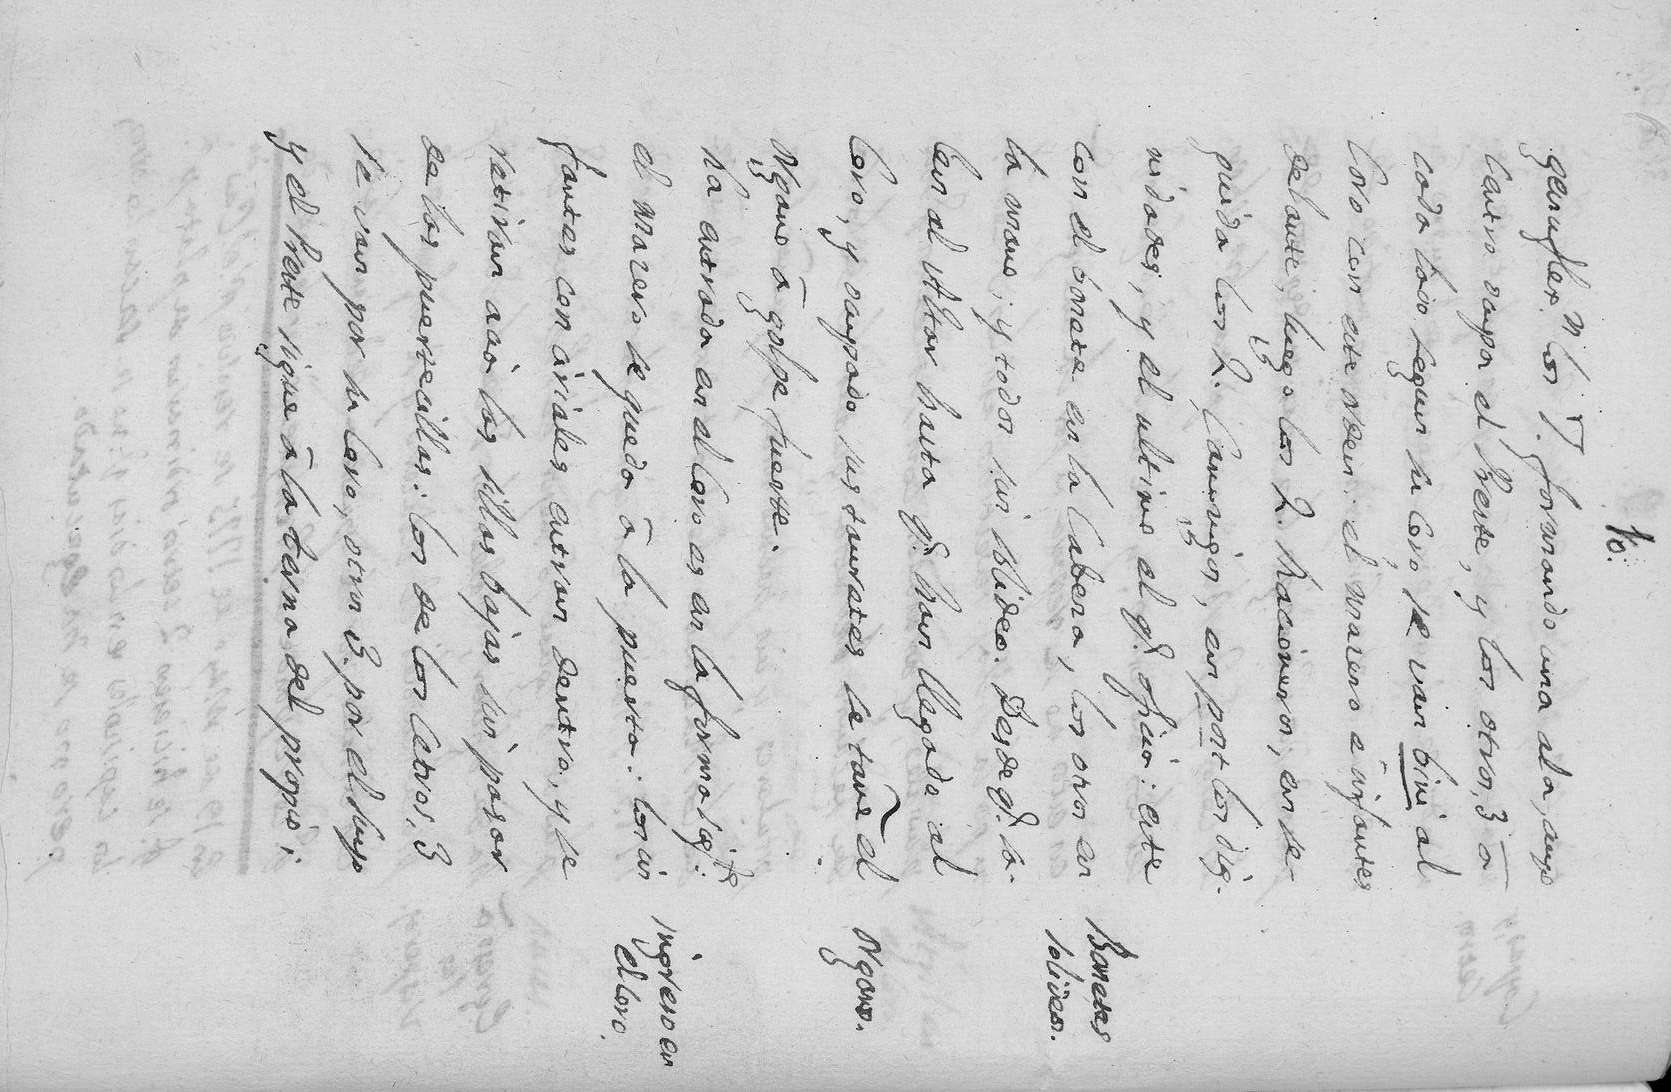 10.
genuflex.n los 7. formando una ala, cuyo
centro ocupa el Preste, y los otros, 3 à
cada lado segun su Coro se van bini al
Coro con este orden: el macero è infantes
delante, luego los 2. Racioneros, en se-
guida los 2. Canonigos, en post los dig-
nidades, y el ultimo el q.e ofició: este
con el bonete en la Cabeza, los otros en
la mano, y todos sin solideo. Desde q.e sa-
len al Altar hasta q.e han llegado al
Coro, y ocupado sus taurates se tañe el
organo à golpe fuerte.
La entrada en el Coro es en la forma sig.te:
el macero se queda à la puerta: los in
fantes con ciriales entran dentro, y se
retiran acia las sillas bajas sin pasar
de los puertecillas: los de los Cetros, 3
se van por su Coro, otros 3. por el suyo
y el Preste sigue à la tarima del propio;
Bonetes
solideos.
Organo.
Ingreso en
el Coro.